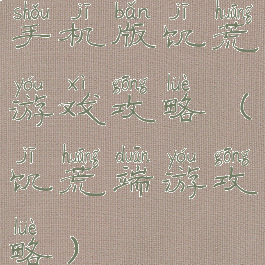 shǒu jī bǎn jī huāng
手机版饥荒
yóu xì gōng lüè
游戏攻略（
jī huāng duān yóu gōng
饥荒端游攻
lüè
略）